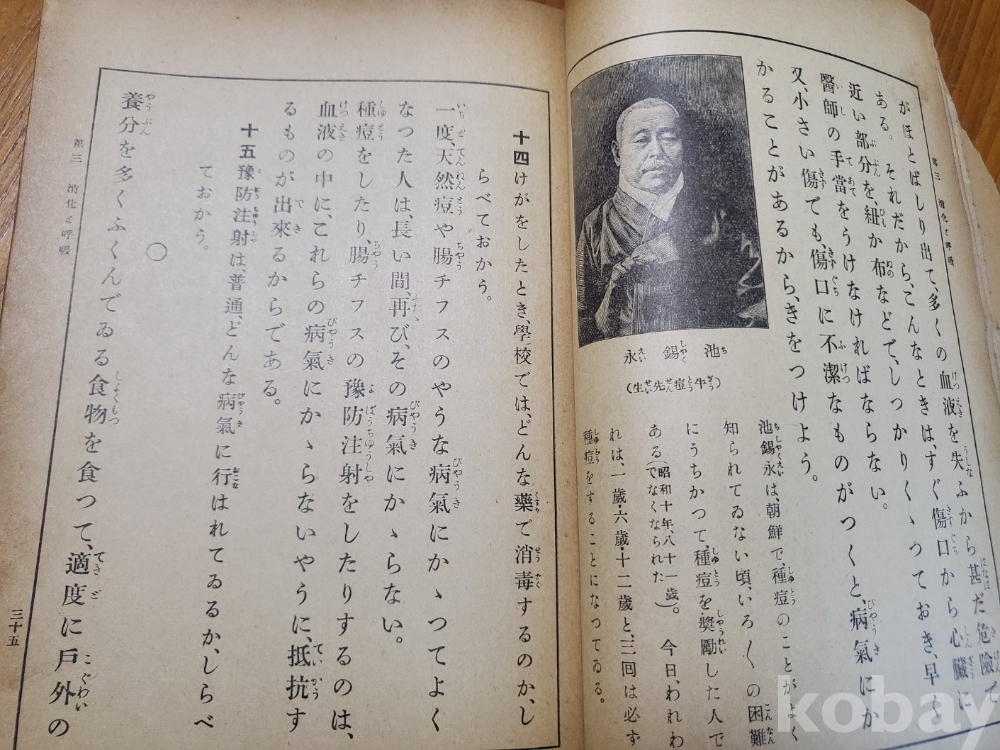 第三 消化と呼吸
がほとばしり出て、多くの血液を失ふから甚だ危險で
ある。それだから、こんなときは、すぐ傷口から心臓に
近い部分を、紐か布などで、しつかりくゝつておき、早く
醫師の手當をうけなければならない。
又、小さい傷でも、傷口に不潔なものがつくと、病氣にか
かることがあるから、きをつけよう。
池錫永
(牛痘先生)
池錫永は、朝鮮で、種痘のことがよく
知られてゐない頃、いろ〳〵の困難
にうちかつて、種痘を奬勵した人で
ある(昭和十年、八十一歳でなくなられた)。今日、われわ
れは、一歳・六歳・十二歳と、三回は必ず
種痘をすることになつてゐる。
十四 けがをしたとき、學校では、どんな藥で消毒するのか、し
らべておかう。
一度、天然痘や腸チフスのやうな病氣にかゝつてよく
なつた人は、長い間、再び、その病氣にかゝらない。
種痘をしたり、腸チフスの豫防注射をしたりするのは、
血液の中に、これらの病氣にかゝらないやうに、抵抗す
るものが出來るからである。
十五 豫防注射は、普通、どんな病氣に行はれてゐるか、しらべ
ておかう。
〇
養分を多くふくんでゐる食物を食つて、適度に戸外の
第三 消化と呼吸
三十五
kobay